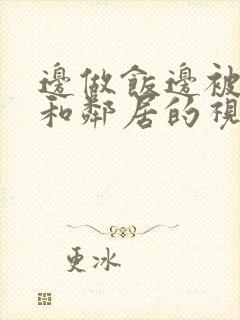 邊做飯邊被
和鄰居的視
更冰